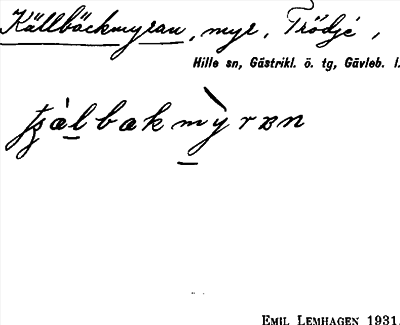 Källbäckmyran, myr, Trödjé,
Hille sn, Gästrikl. ö. tg, Gävleb. l.
EMIL LEMHAGEN 1931.